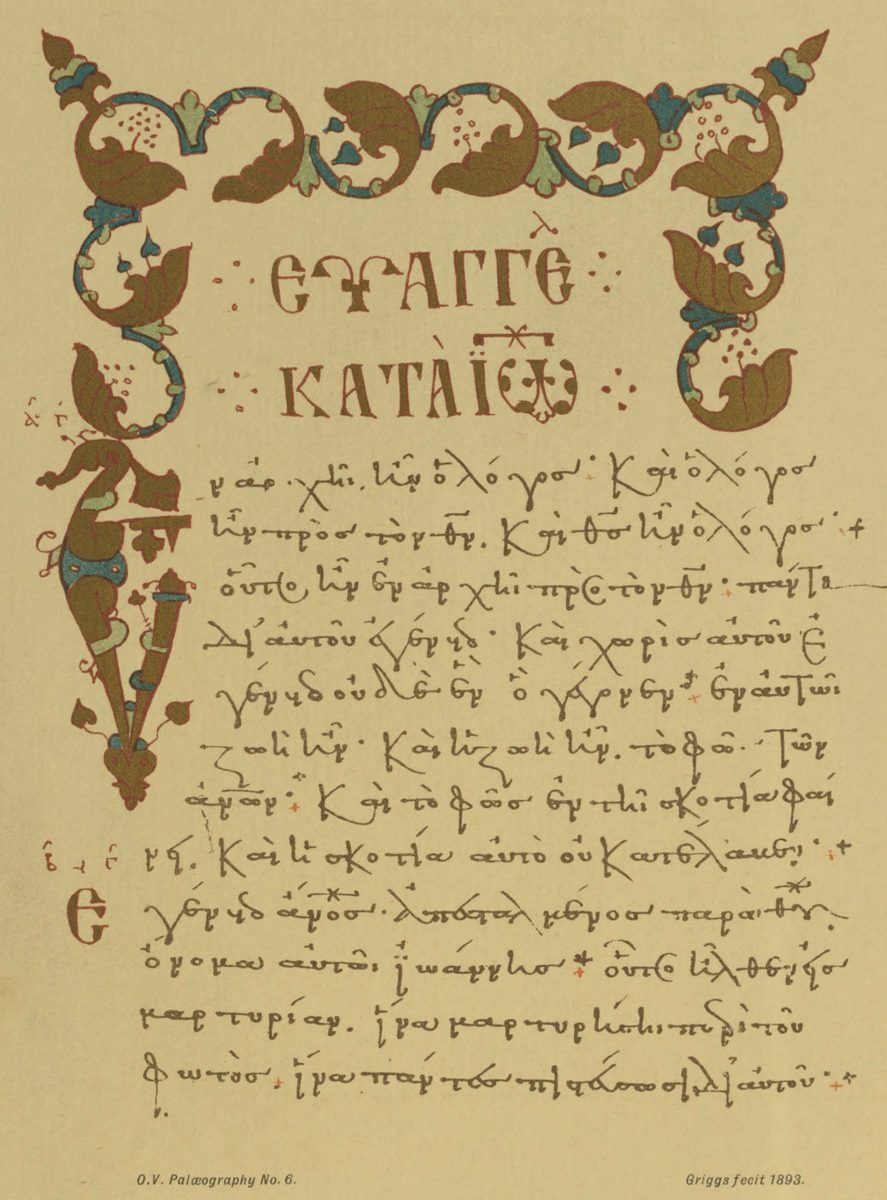 ΕΥΑΓΓΕλ
ΚΑΤᾺ ΪΩ
Ἐν ἀρχῆι ἦν ὁ λόγος· Καὶ ὁ λόγος
ἦν πρὸς τὸν θν. Καὶ θς ἦν ὁ λόγος· +
οὗτος ἦν ἐν ἀρχῆι πρὸς τὸν θν· πάντα
δι' αὐτοῦ ἐγένετο· Καὶ χωρὶς αὐτοῦ ἐ
γένετο οὐδὲ ἓν ὃ γέγονεν· ἐν αὐτῶι
ζωὴ ἦν· Καὶ ἡ ζωὴ ἦν. τὸ φῶς τῶν
ἀνων· Καὶ τὸ φῶς ἐν τῆι σκοτία φαί
νει. Καὶ ἡ σκοτία αὐτὸ οὐ κατέλαβεν· +
Ἐγένετο ἀνος· ἀπεσταλμένος παρὰ θυ.
ὄνομα αὐτῶι ϊωάννης + οὗτος ἦλθεν εἰς
μαρτυρίαν. ἵνα μαρτυρήσηι περὶ τοῦ
φωτὸς. ἵνα πάντες πιστεύσωσι δι' αὐτοῦ· +
O.V. Palæography No. 6.
Griggs fecit 1893.